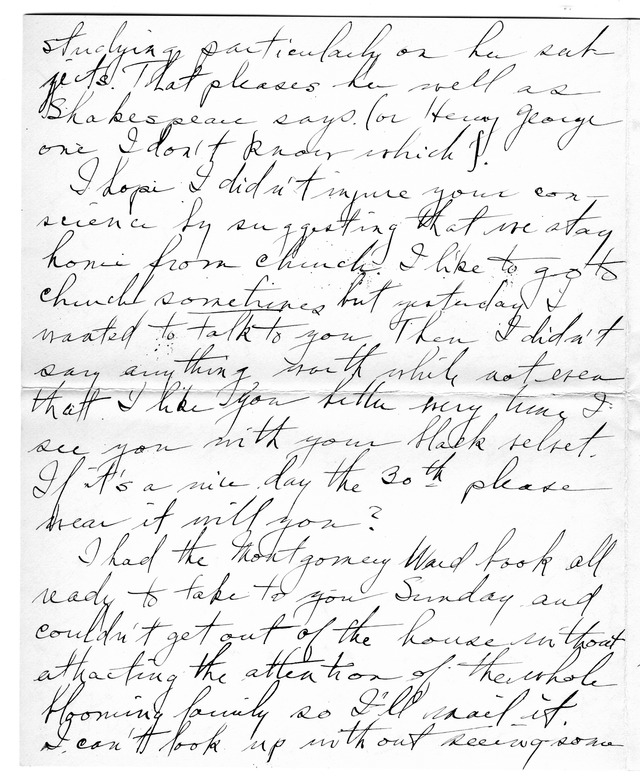 studying particularly on her sub-
jects. That pleases her well as
Shakespeare says. (or Henry George
one I don't know which).
I hope I didn't injure your con-
science by suggesting that we stay
home from church. I like to go to
church sometimes but yesterday I
wanted to talk to you. Then I didn't
say anything worth while not even
that I like you better every time I
see you with your black velvet.
If it's a nice day the 30th please
wear it will you?
I had the Montgomery Ward book all
ready to take to you Sunday and
couldn't get out of the house without
attracting the attention of the whole
blooming family so I'll mail it.
I can't look up without seeing some